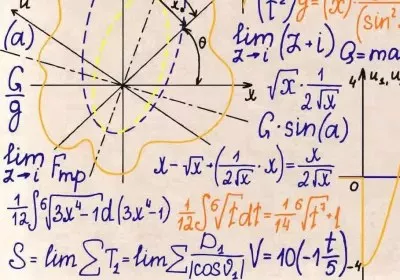 u
x
(t²) y = (x)
(sin²
(a)
θ
lim (z+i)
z→i
Q = ma
G/g
x
√x · 1/(2√x)
4
u₁, u
G · sin(a)
lim Fтр
z→i
x - √x + (1/(2√x) · x) = x/(2√x)
0
1/12 ∫ ⁶√(3x⁴-1) d(3x⁴-1)
1/12 ∫ ⁶√t dt = 1/14 ⁶√t⁷+1
S = lim Σ T₁ = lim Σ D₁/|cosϑ₁|
V = 10(-1 t/5)
-4